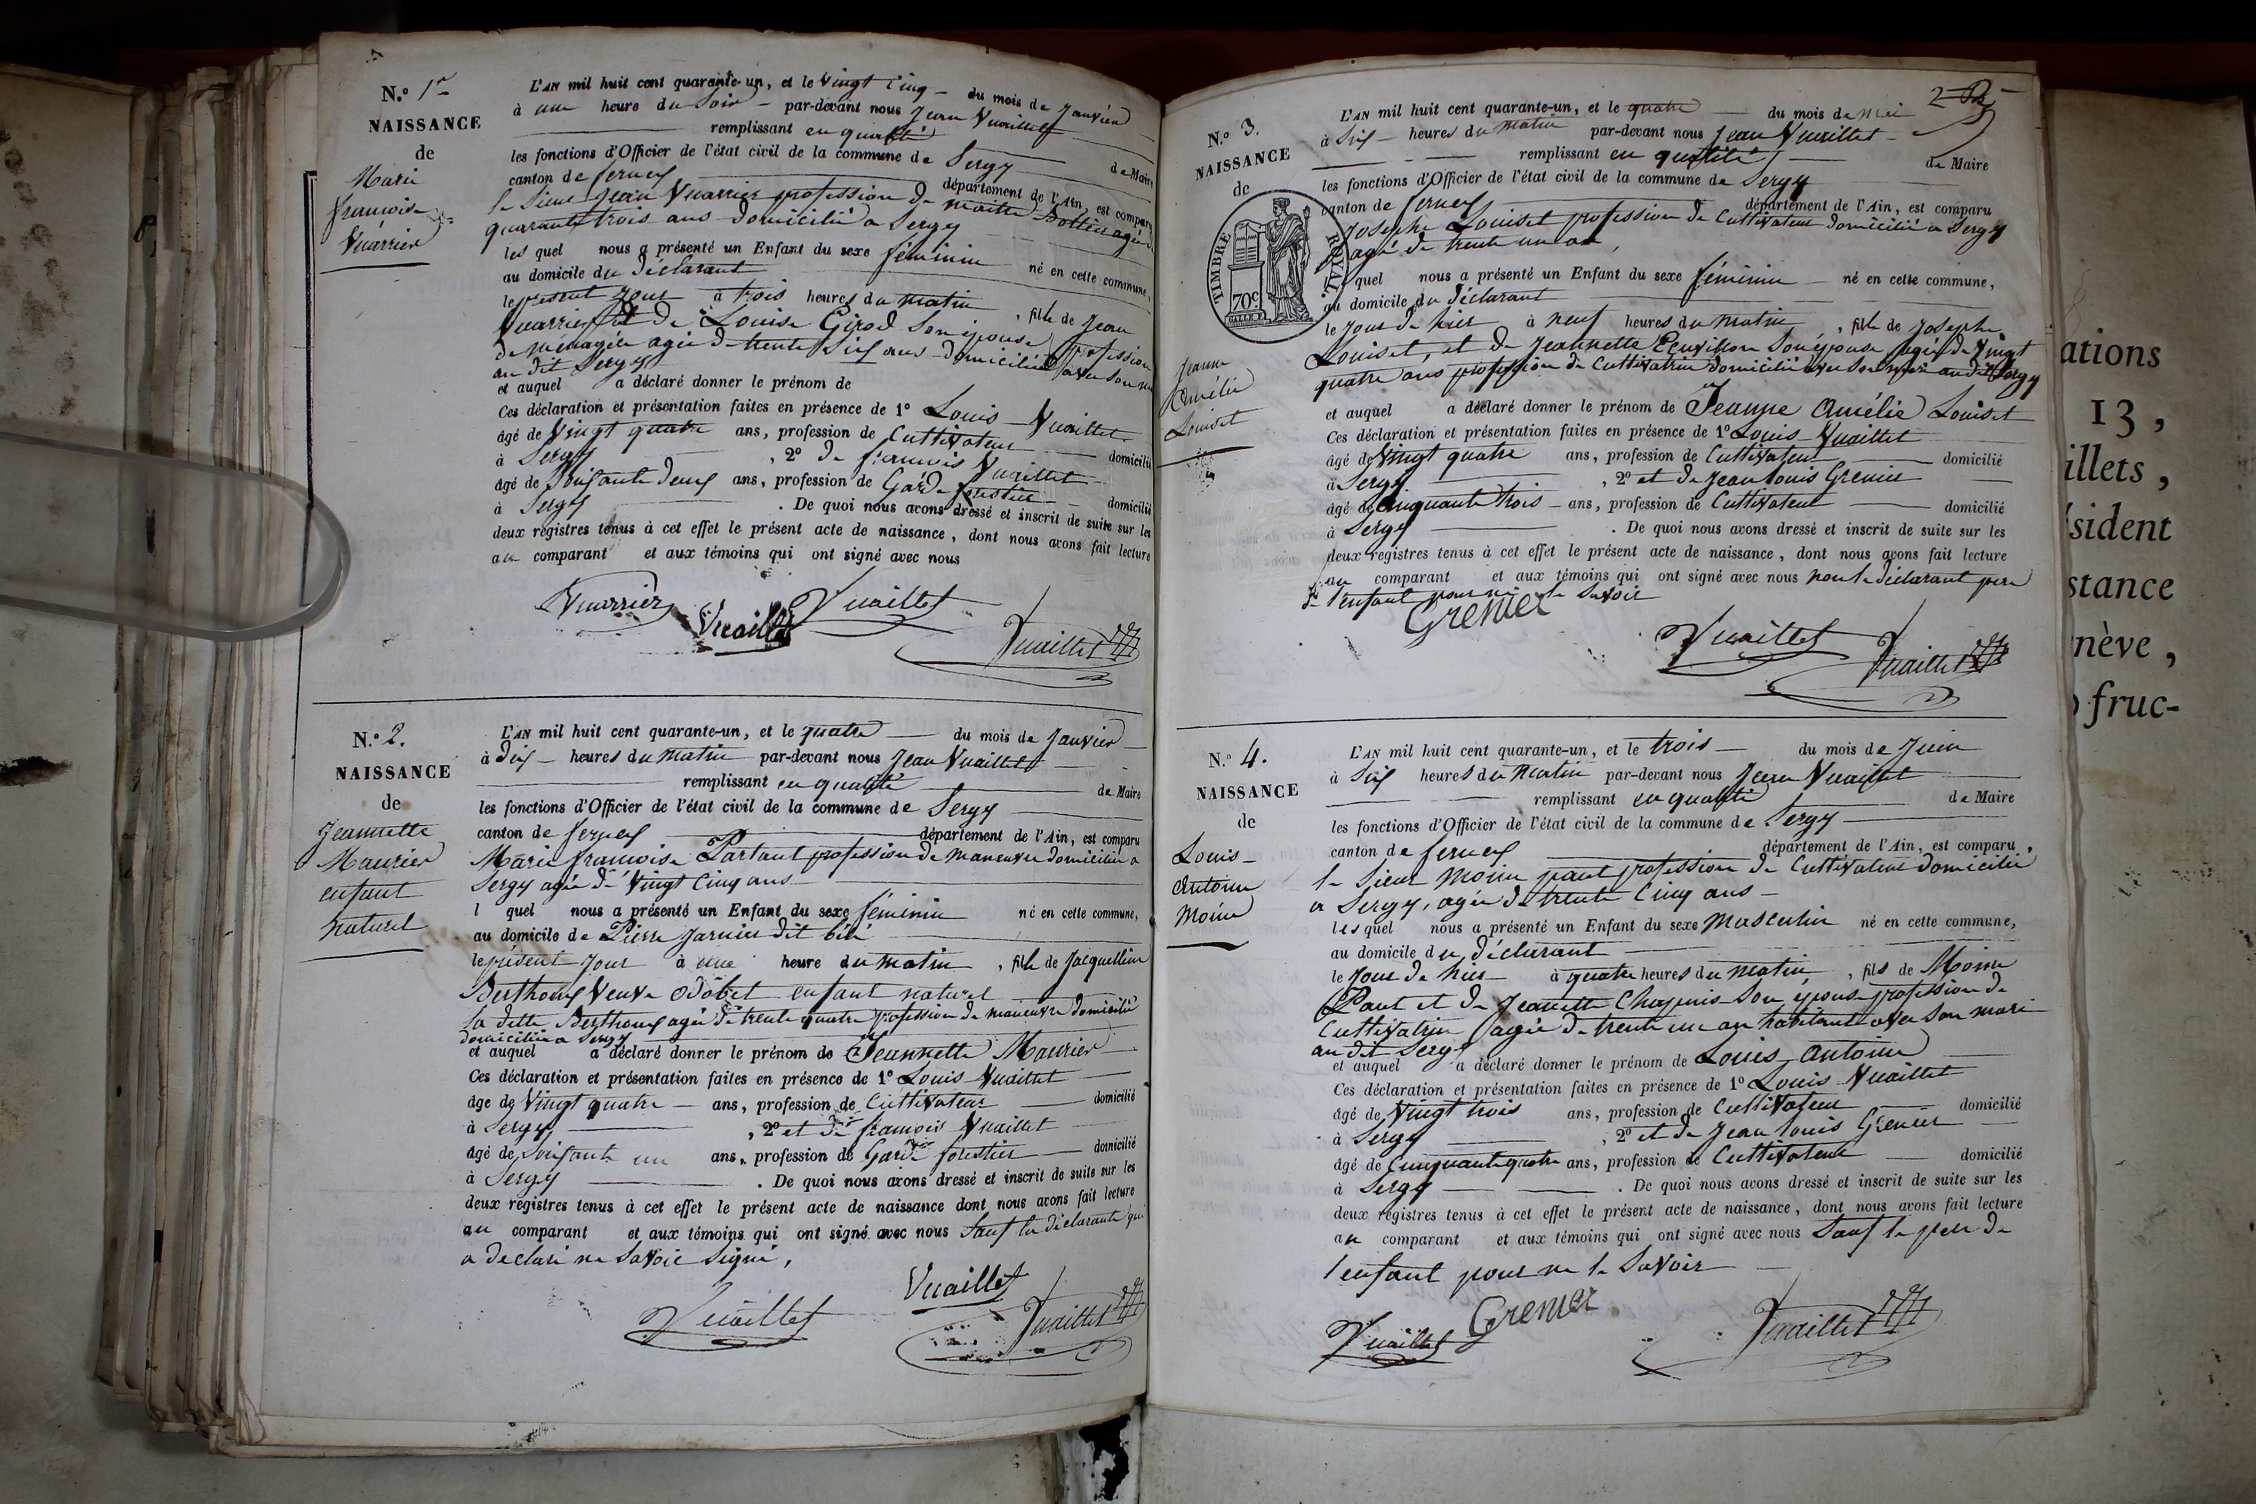 N.º 1er
NAISSANCE
de
Marie
françoise
Vuarrier
L'AN mil huit cent quarante-un, et le vingt cinq du mois de Janvier
à une heure du Soir par-devant nous Jean Vuaillet
remplissant en qualité de Maire
les fonctions d'Officier de l'état civil de la commune de Sergy
canton de ferney département de l'Ain, est comparu
le Sieur Jean Vuarrier profession de maitre Bottier agée
quarante trois ans domicilié a Sergy
les quel nous a présenté un Enfant du sexe féminin né en cette commune,
au domicile du déclarant
le présent Jour à trois heures du matin, fille de Jean
Vuarrier et de Louise Girod Son épouse profession
de ménagée agée de trente Six ans domiciliée avec son
au dit Sergy
et auquel a déclaré donner le prénom de
Ces déclaration et présentation faites en présence de 1º Louis Vuaillet
âgé de Vingt quatre ans, profession de Cultivateur domicilié
à Sergy, 2º de françois Vuaillet
âgé de Soixante deux ans, profession de Garde forestier domicilié
à Sergy. De quoi nous avons dressé et inscrit de suite sur les
deux registres tenus à cet effet le présent acte de naissance, dont nous avons fait lecture
au comparant et aux témoins qui ont signé avec nous
Vuarrier Vuaillet Vuaillet
Vuaillet
N.º 2.
NAISSANCE
de
Jeannette
Maurier
enfant
naturel
L'AN mil huit cent quarante-un, et le quatre du mois de Janvier
à dix heures du matin par-devant nous Jean Vuaillet
remplissant en qualité de Maire
les fonctions d'Officier de l'état civil de la commune de Sergy
canton de ferney département de l'Ain, est comparu
Marie françoise Partaut profession de maneuvre domiciliée a
Sergy agée de Vingt Cinq ans
l quel nous a présenté un Enfant du sexe féminin né en cette commune,
au domicile de Pierre Jarnier dit
le présent Jour à une heure du matin, fille de Jacquelline
Berthoux Veuve Odobet enfant naturel
la ditte Berthoux agée de trente quatre profession de maneuvre domicilié
domiciliée a Sergy
et auquel a déclaré donner le prénom de Jeannette Maurier
Ces déclaration et présentation faites en présence de 1º Louis Vuaillet
âgé de Vingt quatre ans, profession de Cultivateur domicilié
à Sergy, 2º et de françois Vuaillet
âgé de Soixante un ans, profession de Garde forestier domicilié
à Sergy. De quoi nous avons dressé et inscrit de suite sur les
deux registres tenus à cet effet le présent acte de naissance dont nous avons fait lecture
au comparant et aux témoins qui ont signé avec nous Sauf la déclarante qui
a déclaré ne Savoir Signé,
Vuaillet Vuaillet
Vuaillet
2
N.º 3.
NAISSANCE
de
TIMBRE ROYAL
70c
Jeanne
Amélie
Louiset
L'AN mil huit cent quarante-un, et le quatre du mois de Mai
à Six heures du matin par-devant nous Jean Vuaillet
remplissant en qualité de Maire
les fonctions d'Officier de l'état civil de la commune de Sergy
canton de ferney département de l'Ain, est comparu
Joseph Louiset profession de Cultivateur domicilié a Sergy
agé de trente un an,
quel nous a présenté un Enfant du sexe féminin né en cette commune,
au domicile du déclarant
le Jour de hier à neuf heures du matin, fille de Joseph
Louiset, et de Jeannette Son épouse agée de Vingt
quatre ans profession de Cultivatrice domiciliée avec Son mari au dit Sergy
et auquel a déclaré donner le prénom de Jeanne Amélie Louiset
Ces déclaration et présentation faites en présence de 1º Louis Vuaillet
âgé de Vingt quatre ans, profession de Cultivateur domicilié
à Sergy, 2º et de Jean Louis Grenier
âgé de Cinquante trois ans, profession de Cultivateur domicilié
à Sergy. De quoi nous avons dressé et inscrit de suite sur les
deux registres tenus à cet effet le présent acte de naissance, dont nous avons fait lecture
au comparant et aux témoins qui ont signé avec nous non le déclarant père
de l'enfant pour ne le Savoir
Grenier
Vuaillet Vuaillet
N.º 4.
NAISSANCE
de
Louis
Antoine
Moine
L'AN mil huit cent quarante-un, et le trois du mois de Juin
à Six heures du matin par-devant nous Jean Vuaillet
remplissant en qualité de Maire
les fonctions d'Officier de l'état civil de la commune de Sergy
canton de ferney département de l'Ain, est comparu,
le Sieur Moine paul profession de Cultivateur domicilié
a Sergy, agée de trente Cinq ans
les quel nous a présenté un Enfant du sexe Masculin né en cette commune,
au domicile du déclarant
le Jour de hier à quatre heures du matin, fils de Moine
Paul et de Jeanette Chapuis Son épouse profession de
Cultivatrice agée de trente un an habitant avec Son mari
au dit Sergy
et auquel a déclaré donner le prénom de Louis Antoine
Ces déclaration et présentation faites en présence de 1º Louis Vuaillet
âgé de Vingt trois ans, profession de Cultivateur domicilié
à Sergy, 2º et de Jean Louis Grenier
âgé de Cinquante quatre ans, profession de Cultivateur domicilié
à Sergy. De quoi nous avons dressé et inscrit de suite sur les
deux registres tenus à cet effet le présent acte de naissance, dont nous avons fait lecture
au comparant et aux témoins qui ont signé avec nous Sauf le père de
l'enfant pour ne le Savoir
Vuaillet Grenier Vuaillet
ations
13,
illets,
sident
stance
nève,
fruc-